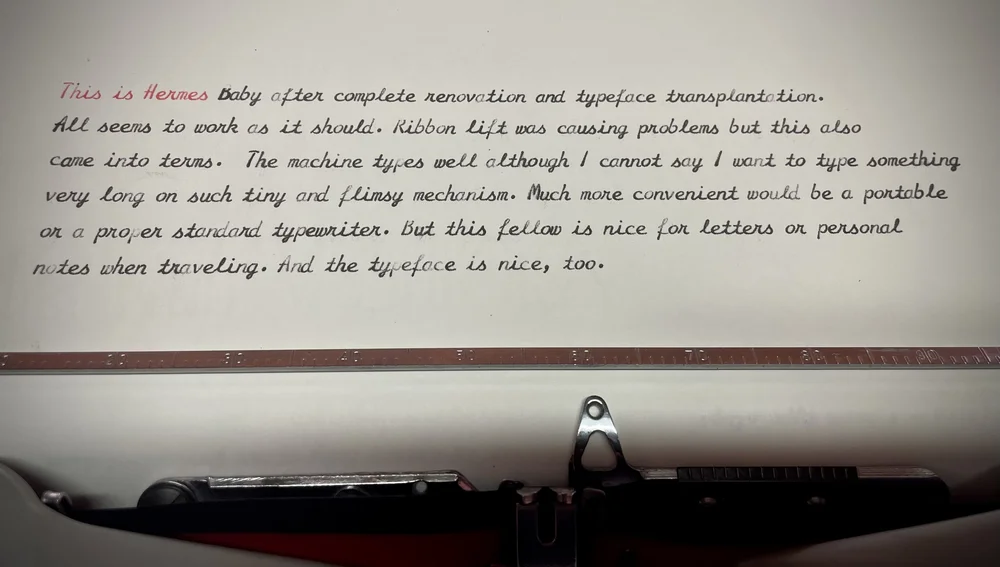 This is Hermes Baby after complete renovation and typeface transplantation.
All seems to work as it should. Ribbon lift was causing problems but this also
came into terms. The machine types well although I cannot say I want to type something
very long on such tiny and flimsy mechanism. Much more convenient would be a portable
or a proper standard typewriter. But this fellow is nice for letters or personal
notes when traveling. And the typeface is nice, too.
0 20 30 40 50 60 70 80 90